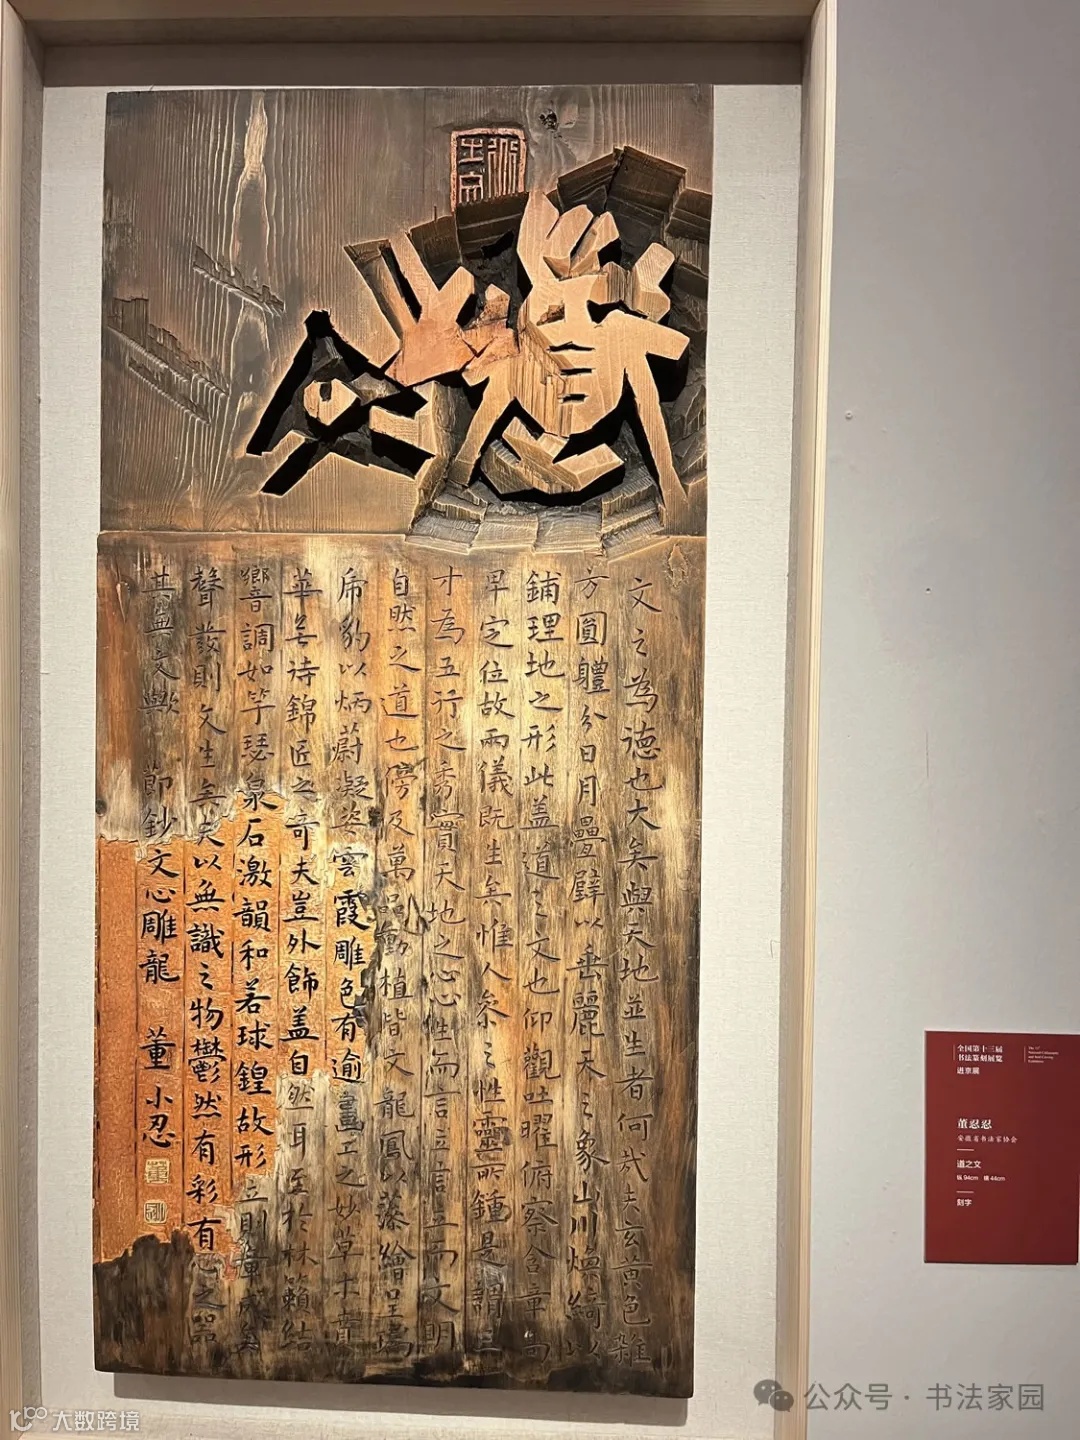 文之為德也大矣與天地並生者何哉夫玄黄色雜
方圓體分日月疊璧以垂麗天之象山川煥綺以
鋪理地之形此盖道之文也仰觀吐曜俯察含章高
卑定位故兩儀既生矣惟人參之性靈所鍾是謂三
才為五行之秀實天地之心心性而言立言立而文明
自然之道也傍及萬品動植皆文龍鳳以藻繪呈瑞
虎豹以炳蔚凝姿雲霞雕色有逾畫工之妙草木賁
華無待錦匠之奇夫豈外飾盖自然耳至於林籟結
響調如竽瑟泉石激韻和若球鍠故形立則章成矣
聲發則文生矣夫以無識之物鬱然有彩有心之器
其無文歟 節鈔文心雕龍 董小忍
全国第十三届
书法篆刻展览
进京展
董忍忍
安徽省书法家协会
道之文
纵 94cm 横 44cm
刻字
公众号·书法家园
大数跨境